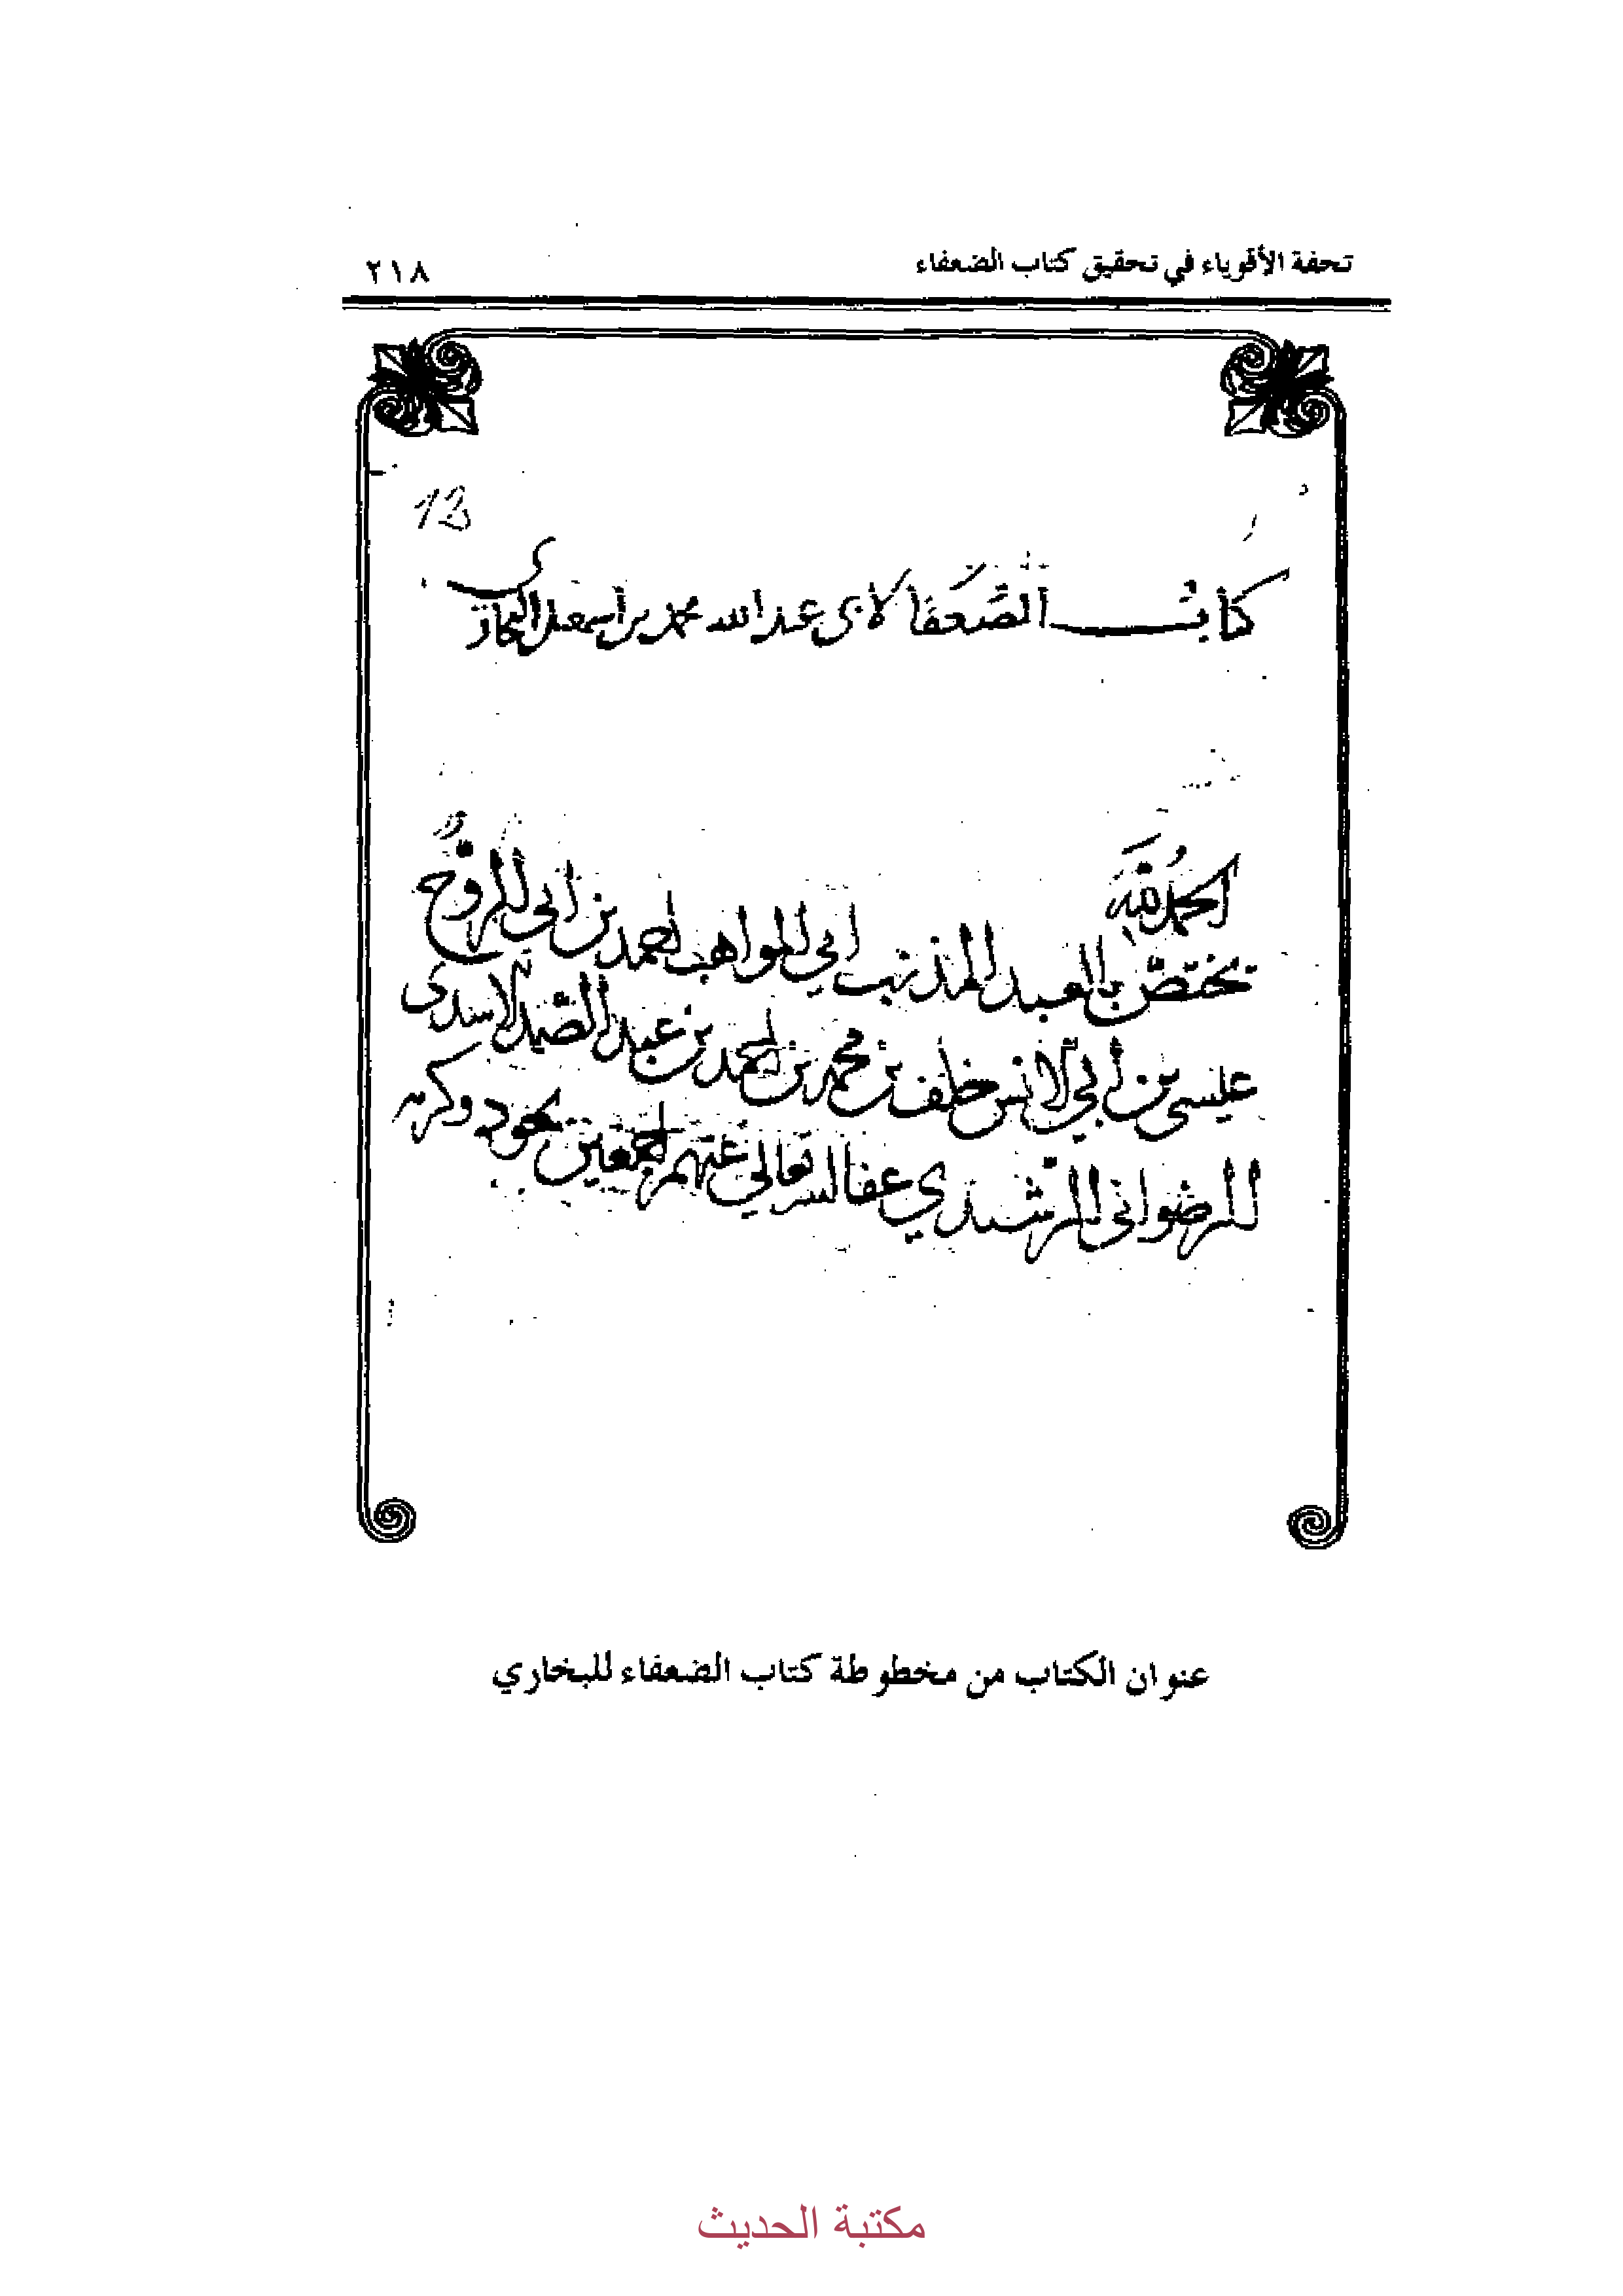 تحفة الأقوياء في تحقيق كتاب الضعفاء ٢١٨
13
كتاب الضعفا لابى عبد الله محمد بن اسمعيل البخارى
الحمد لله
يختص بالعبد المذنب أبي المواهب أحمد بن أبي الروح
عيسى بن أبي الانس خلف بن محمد بن احمد بن عبد الصمد الاسدى
الرضوانى الرشيدي عفا الله تعالى عنهم أجمعين بجوده وكرمه
عنوان الكتاب من مخطوطة كتاب الضعفاء للبخاري
مكتبة الحديث